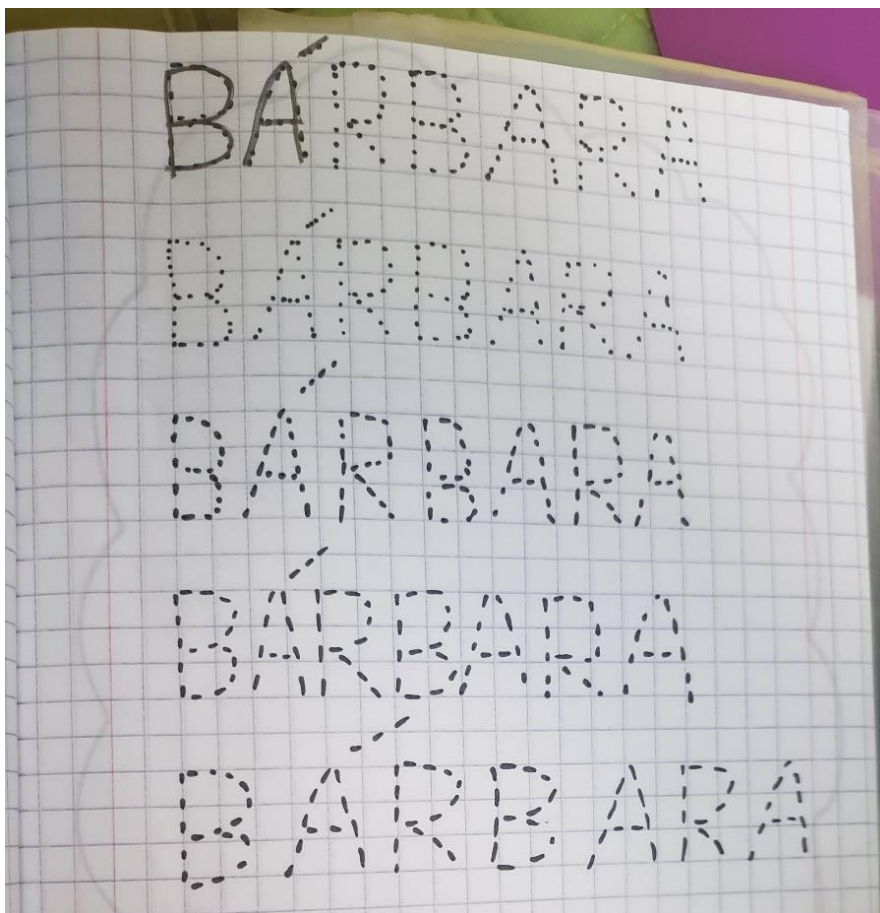 BÁRBARA
BÁRBARA
BÁRBARA
BÁRBARA
BÁRBARA